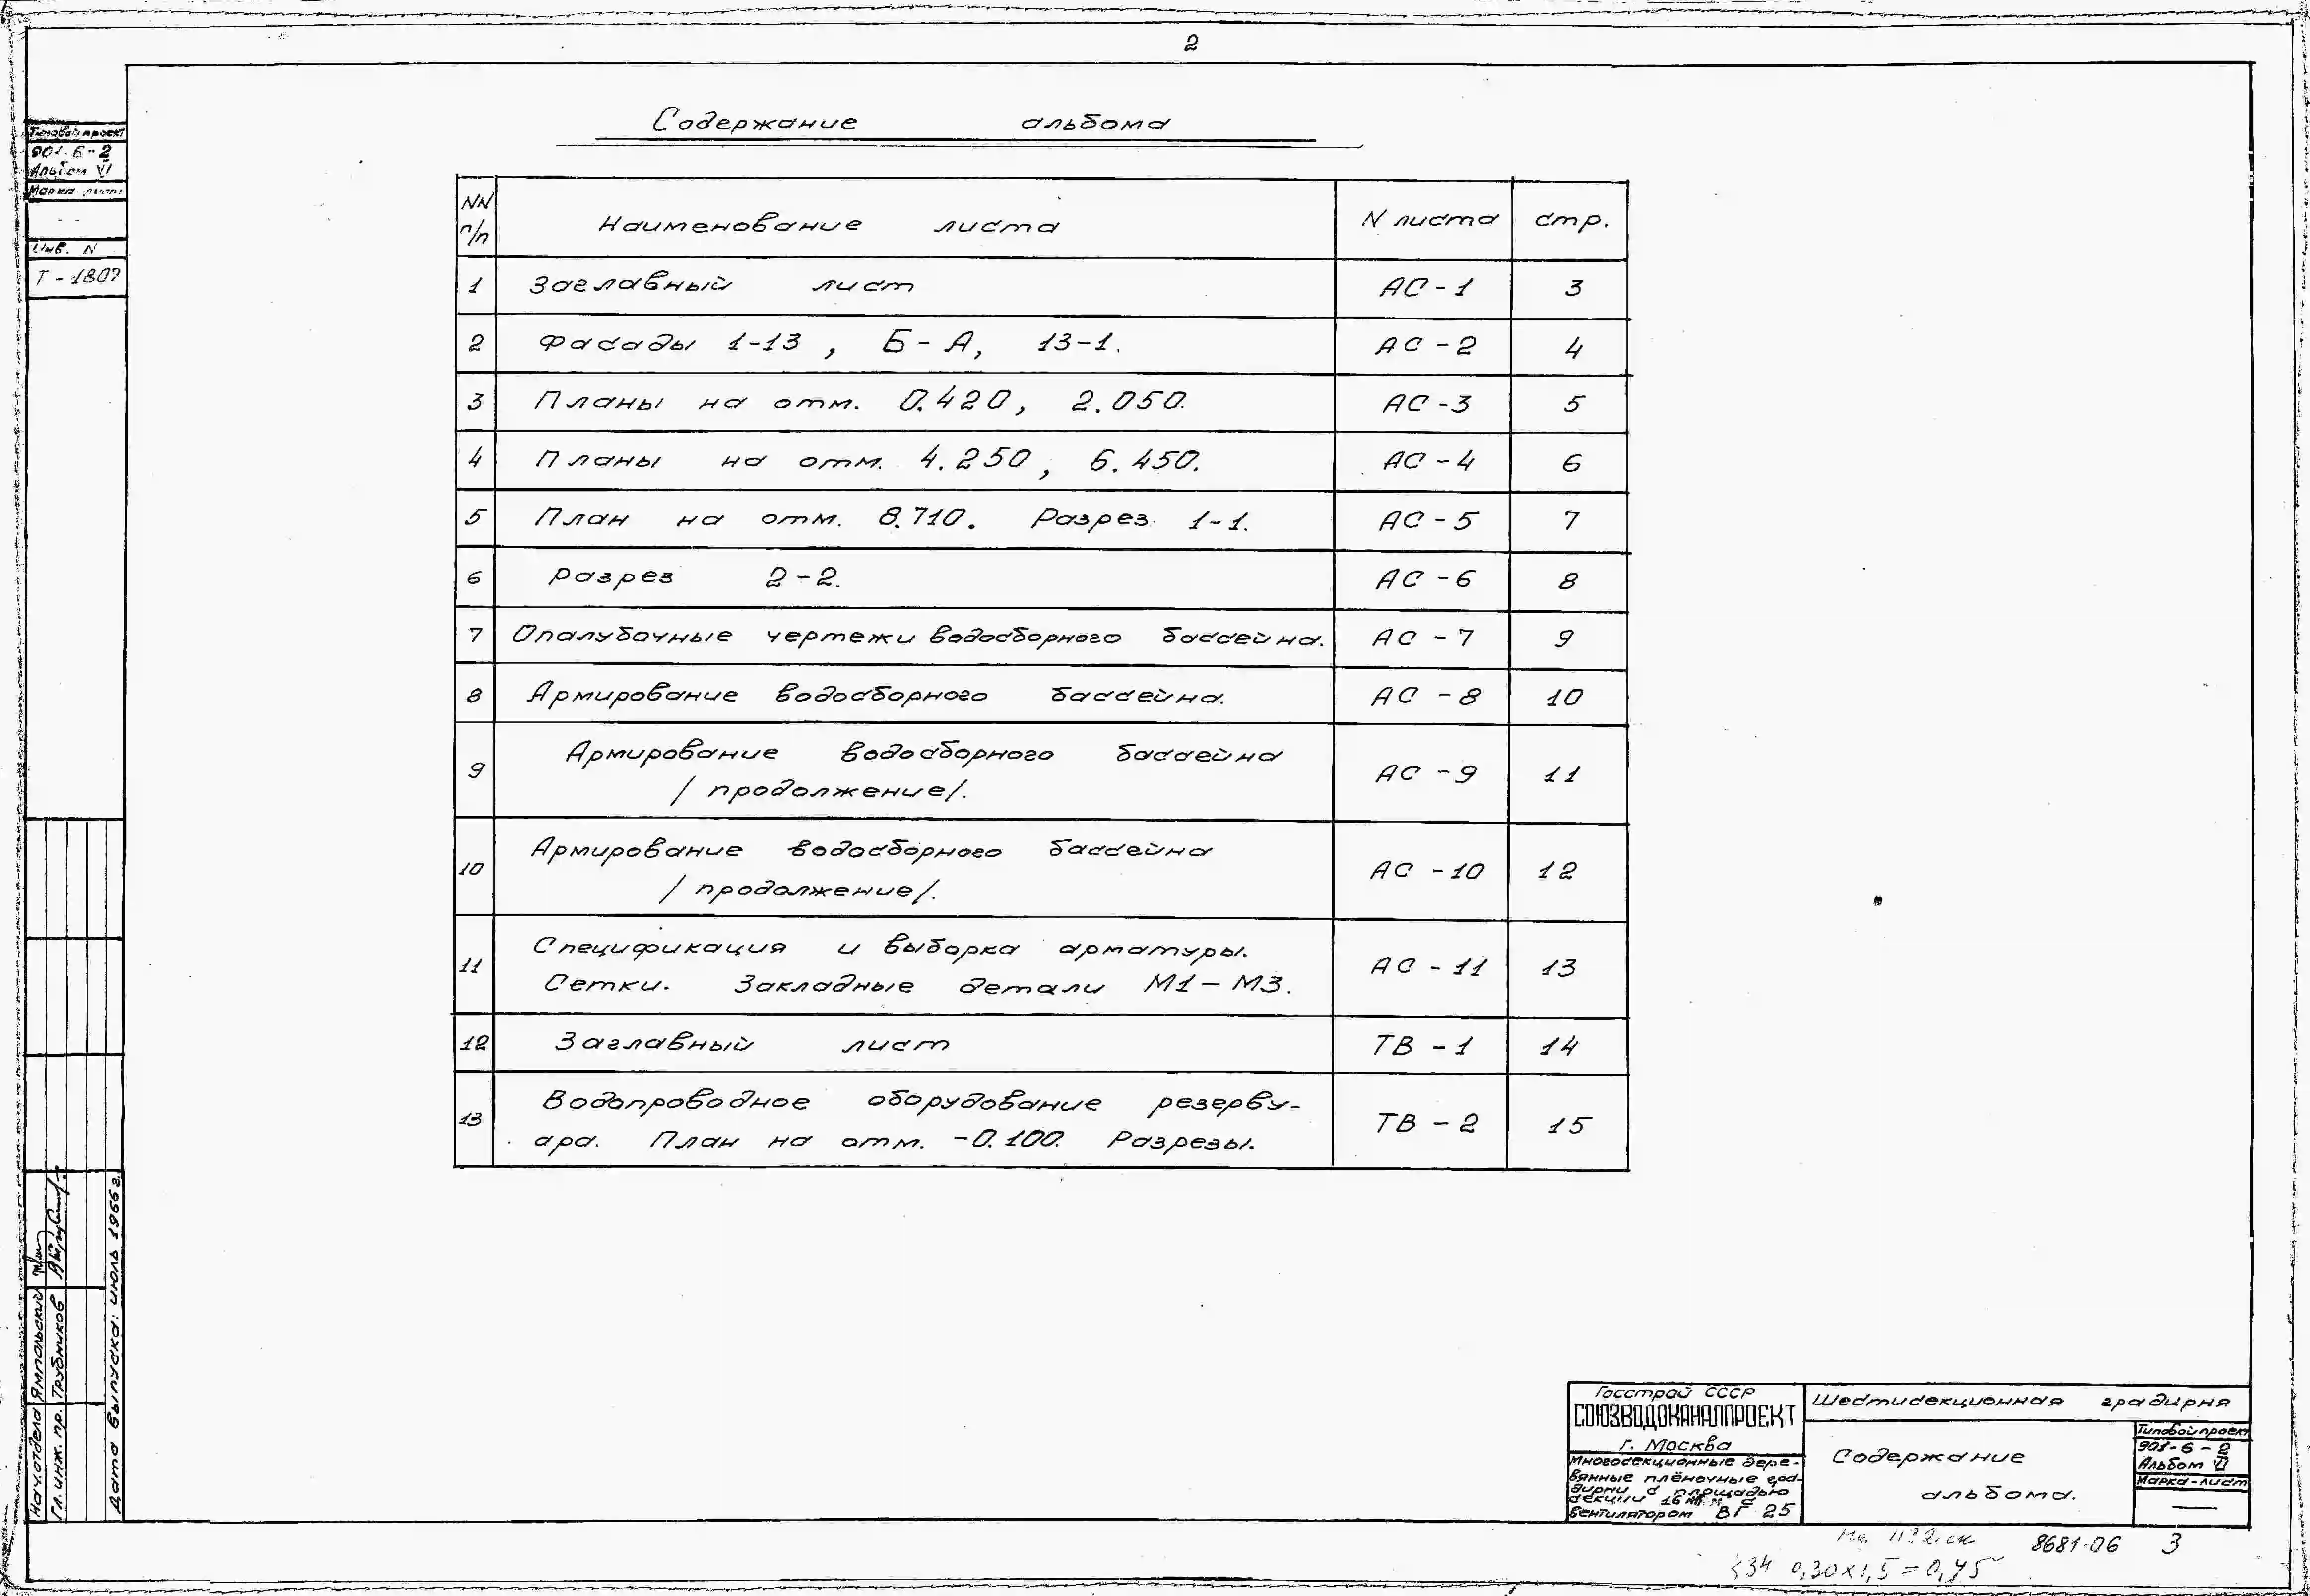 2
Содержание альбома
Типовой проект
901-6-2
Альбом VI
Марка-лист
Инв. N
Т-1807
NN п/п Наименование листа N листа стр.
1 Заглавный лист АС-1 3
2 Фасады 1-13, Б-А, 13-1. АС-2 4
3 Планы на отм. 0.420, 2.050. АС-3 5
4 Планы на отм. 4.250, 6.450. АС-4 6
5 План на отм. 8.710. Разрез 1-1. АС-5 7
6 Разрез 2-2. АС-6 8
7 Опалубочные чертежи водосборного бассейна. АС-7 9
8 Армирование водосборного бассейна. АС-8 10
9 Армирование водосборного бассейна АС-9 11
/продолжение/.
10 Армирование водосборного бассейна АС-10 12
/продолжение/.
11 Спецификация и выборка арматуры. АС-11 13
Сетки. Закладные детали М1-М3.
12 Заглавный лист ТВ-1 14
13 Водопроводное оборудование резерву- ТВ-2 15
ара. План на отм. -0.100. Разрезы.
Нач. отдела Ямпольский
Гл. инж. пр. Трубников
Дата выпуска: июль 1966 г.
Госстрой СССР
СОЮЗВОДОКАНАЛПРОЕКТ
г. Москва
Многосекционные дере-
вянные плёночные гра-
дирни с площадью
секции 16 кв. м с
вентилятором ВГ 25
Шестисекционная градирня
Содержание
альбома.
Типовой проект
901-6-2
Альбом VI
Марка-лист
8681-06 3
0,30х1,5=0,45